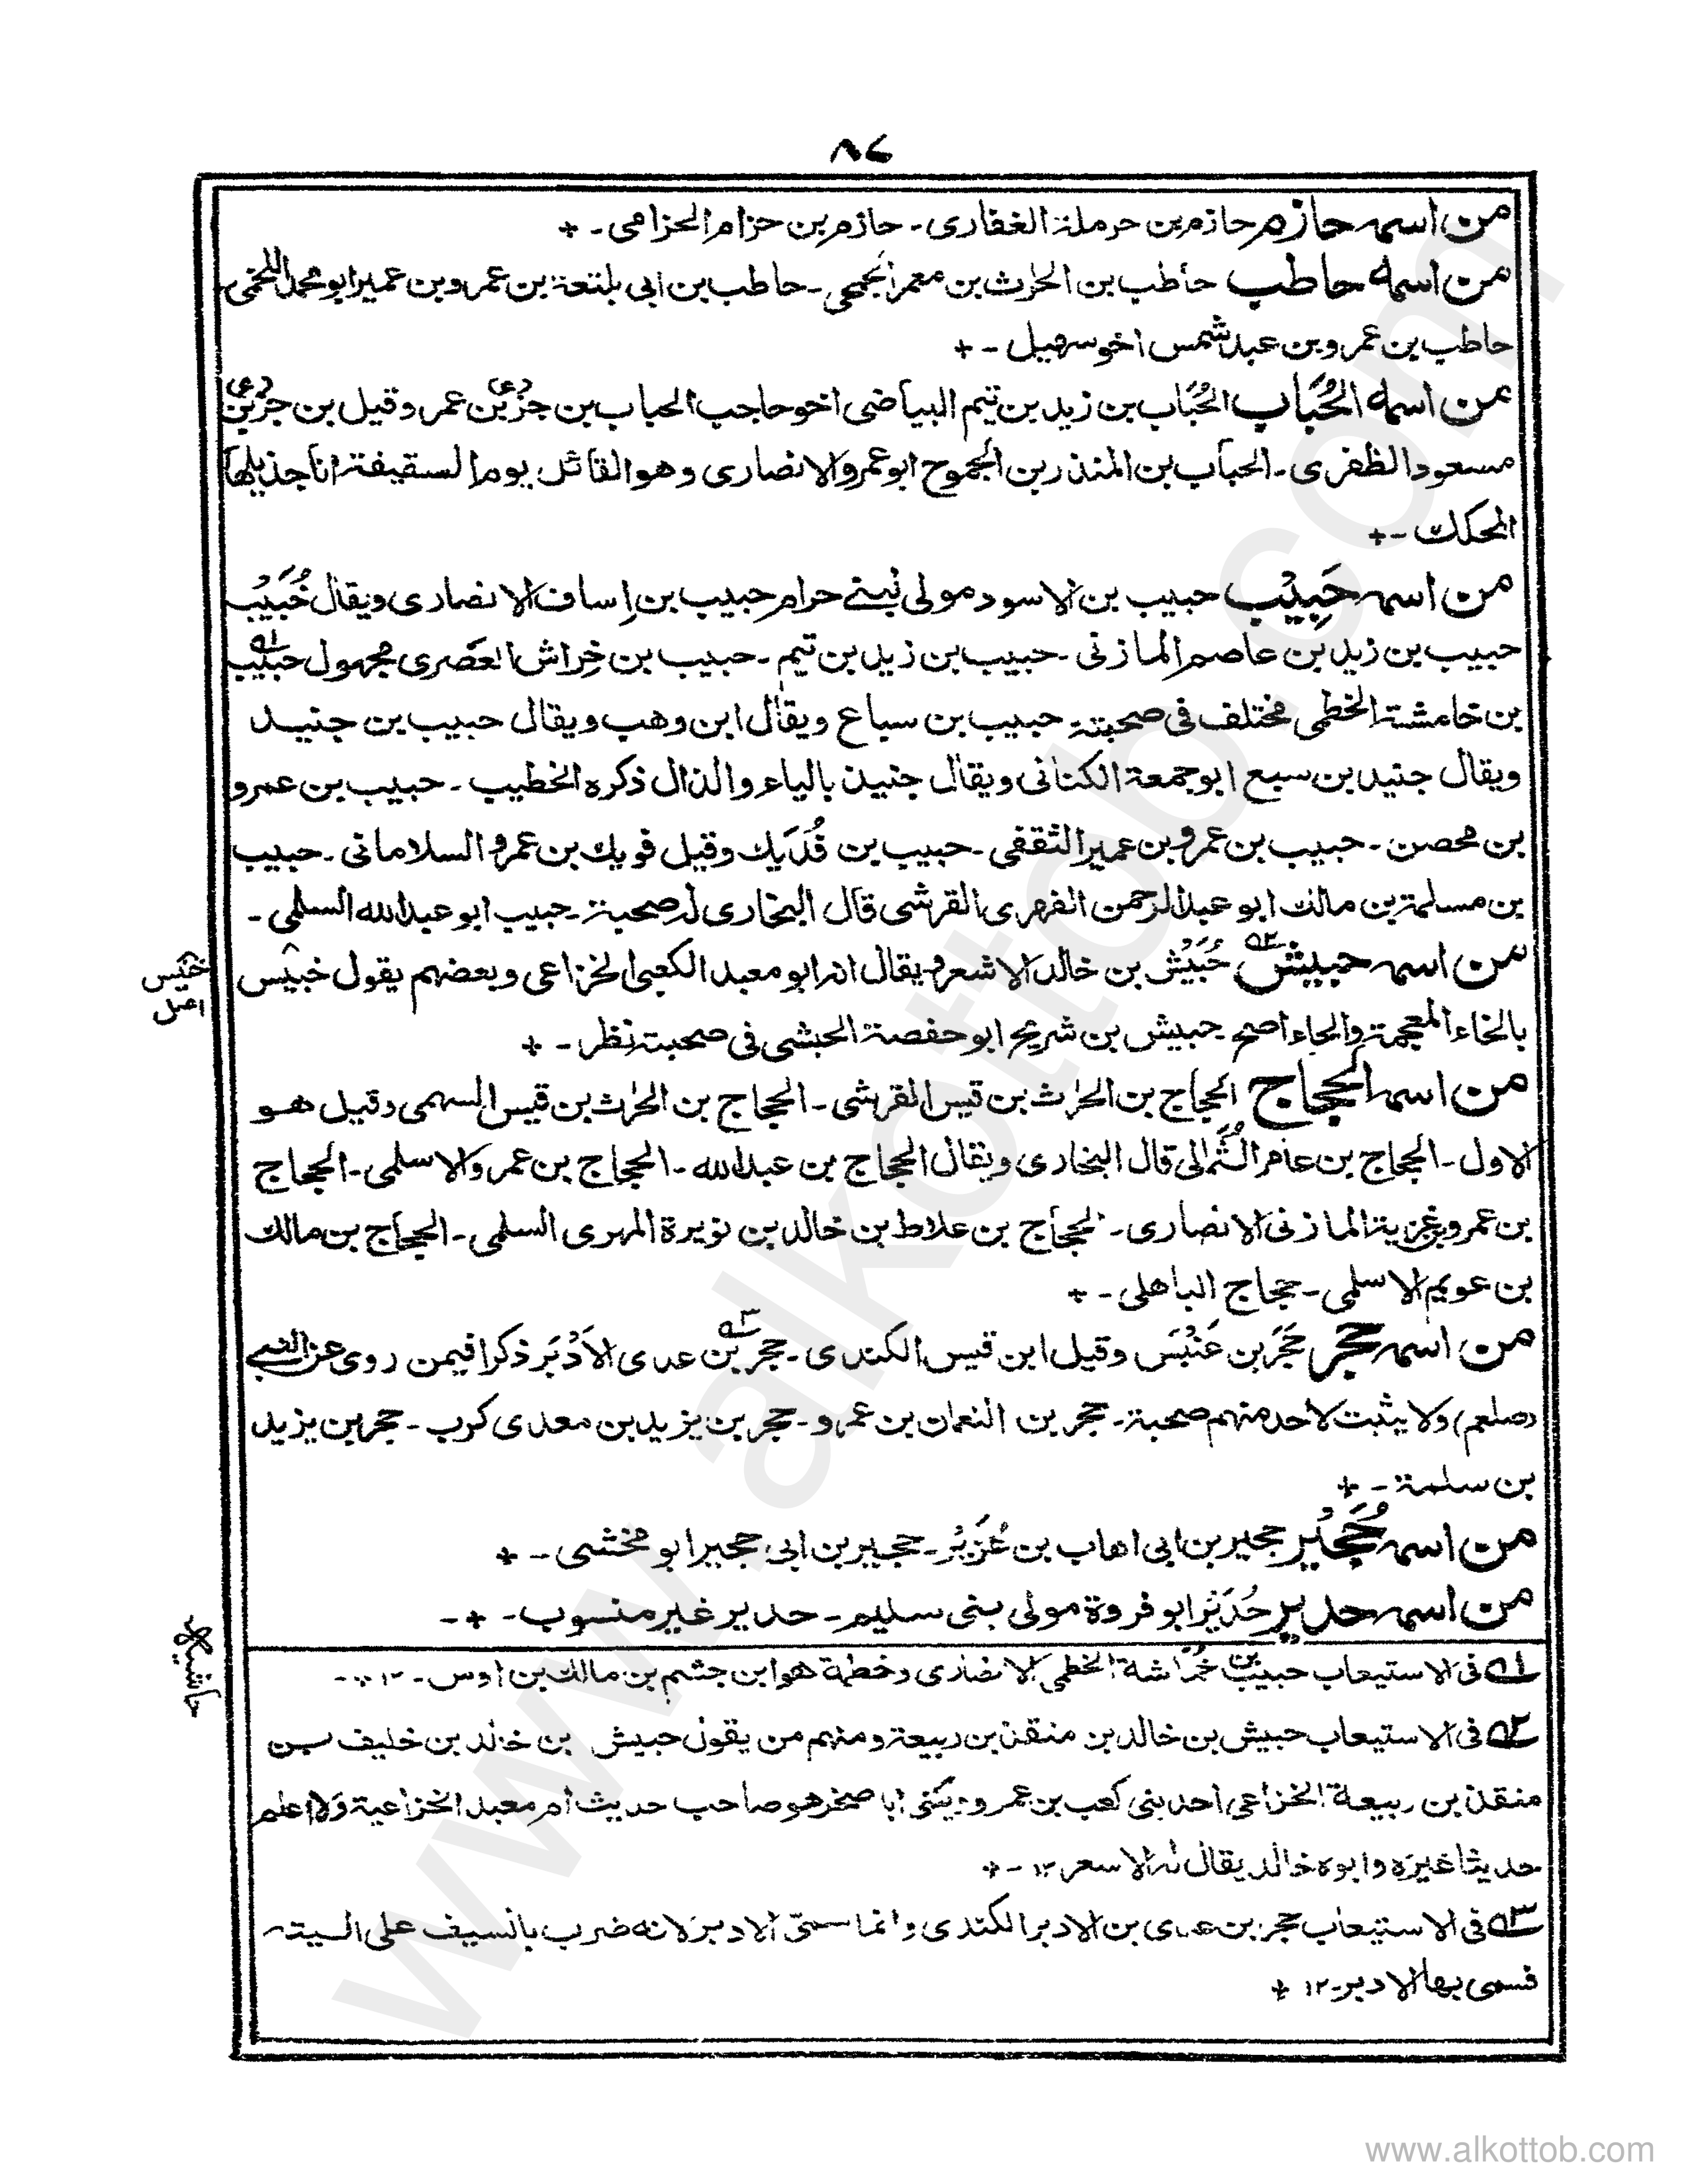 ٨٤
من اسمه حازم حازم بن حرملة الغفاری - حازم بن حزام الحزامی - +
من اسمه حاطب حاطب بن الحٰرث بن معمر الجمحی - حاطب بن ابی بلتعة بن عمرو بن عمیر ابو محمد اللخمی -
حاطب بن عمرو بن عبد شمس اخو سهیل - +
من اسمه الحُبَاب الحُبَاب بن زید بن تیم البیاضی اخو حاجب الحباب بن جزء بن عمر وقیل بن جزء بن
مسعود الظفری - الحباب بن المنذر بن الجموح ابو عمرو الانصاری وهو القائل یوم السقیفة انا جذیلها
المحكك - +
من اسمه حَبِیْب حبیب بن الاسود مولی بنی حرام حبیب بن اِساف الانصاری ویقال خُبَیْب
حبیب بن زید بن عاصم المازنی - حبیب بن زید بن تیم - حبیب بن خِراش العصری مجهول حبیب
بن خامشة الخطمی مختلف فی صحبته حبیب بن سباع ویقال ابن وهب ویقال حبیب بن جنید
ویقال جنید بن سبع ابو جمعة الکنانی ویقال جنیذ بالیاء والذال ذکره الخطیب - حبیب بن عمرو
بن محصن - حبیب بن عمرو بن عمیر الثقفی - حبیب بن فُدَیك وقیل فویك بن عمرو السلامانی - حبیب
بن مسلمة بن مالك ابو عبد الرحمن الفهری القرشی قال البخاری له صحبة - حبیب ابو عبد الله السلمی -
من اسمه حبیش حُبَیْش بن خالد الاشعر ویقال انه ابو معبد الکعبی الخزاعی وبعضهم یقول خبیس
بالخاء المعجمة والحاء اصح - حبیش بن شریح ابو حفصة الحبشی فی صحبته نظر - +
من اسمه الحجاج الحجاج بن الحٰرث بن قیس القرشی - الحجاج بن الحٰرث بن قیس السهمی وقیل هو
الاول - الحجاج بن عامر الثُّمالی قال البخاری ویقال الحجاج بن عبد الله - الحجاج بن عمرو الاسلمی - الحجاج
بن عمرو بن غزیة المازنی الانصاری - الحجاج بن علاط بن خالد بن نویرة المهری السلمی - الحجاج بن مالك
بن عویم الاسلمی - حجاج الباهلی - +
من اسمه حجر حَجَر بن عَنْبَس وقیل ابن قیس الکندی - حجر بن عدی الاَدْبَر ذکرا فیمن روی عن النبی
(صلعم) ولا یثبت لاحد منهم صحبة - حجر بن النعمان بن عمرو - حجر بن یزید بن معدی کرب - حجر بن یزید
بن سلمة - +
من اسمه حُجَیْر حجیر بن ابی اهاب بن عُزَیْر - حجیر بن ابی حجیر ابو مخشی - +
من اسمه حدیر حُدَیْر ابو فروة مولی بنی سلیم - حدیر غیر منسوب - + -
خبیس
اصل
حاشیه
١ فی الاستیعاب حبیب بن خُمَاشة الخطمی الانصاری وخطمة هو ابن جشم بن مالك بن اوس - ١٢
٢ فی الاستیعاب حبیش بن خالد بن منقذ بن ربیعة ومنهم من یقول حبیش بن خالد بن خلیف بن
منقذ بن ربیعة الخزاعی احد بنی کعب بن عمرو ویکنی ابا صخر هو صاحب حدیث ام معبد الخزاعیة ولا اعلم
حدیثا غیره وابوه خالد یقال له الاسعر ١٢ - +
٣ فی الاستیعاب حجر بن عدی بن الادبر الکندی وانما سمّی الادبر لانه ضرب بالسیف علی الیته
فسمی بها الادبر - ١٢ +
www.alkottob.com
www.alkottob.com